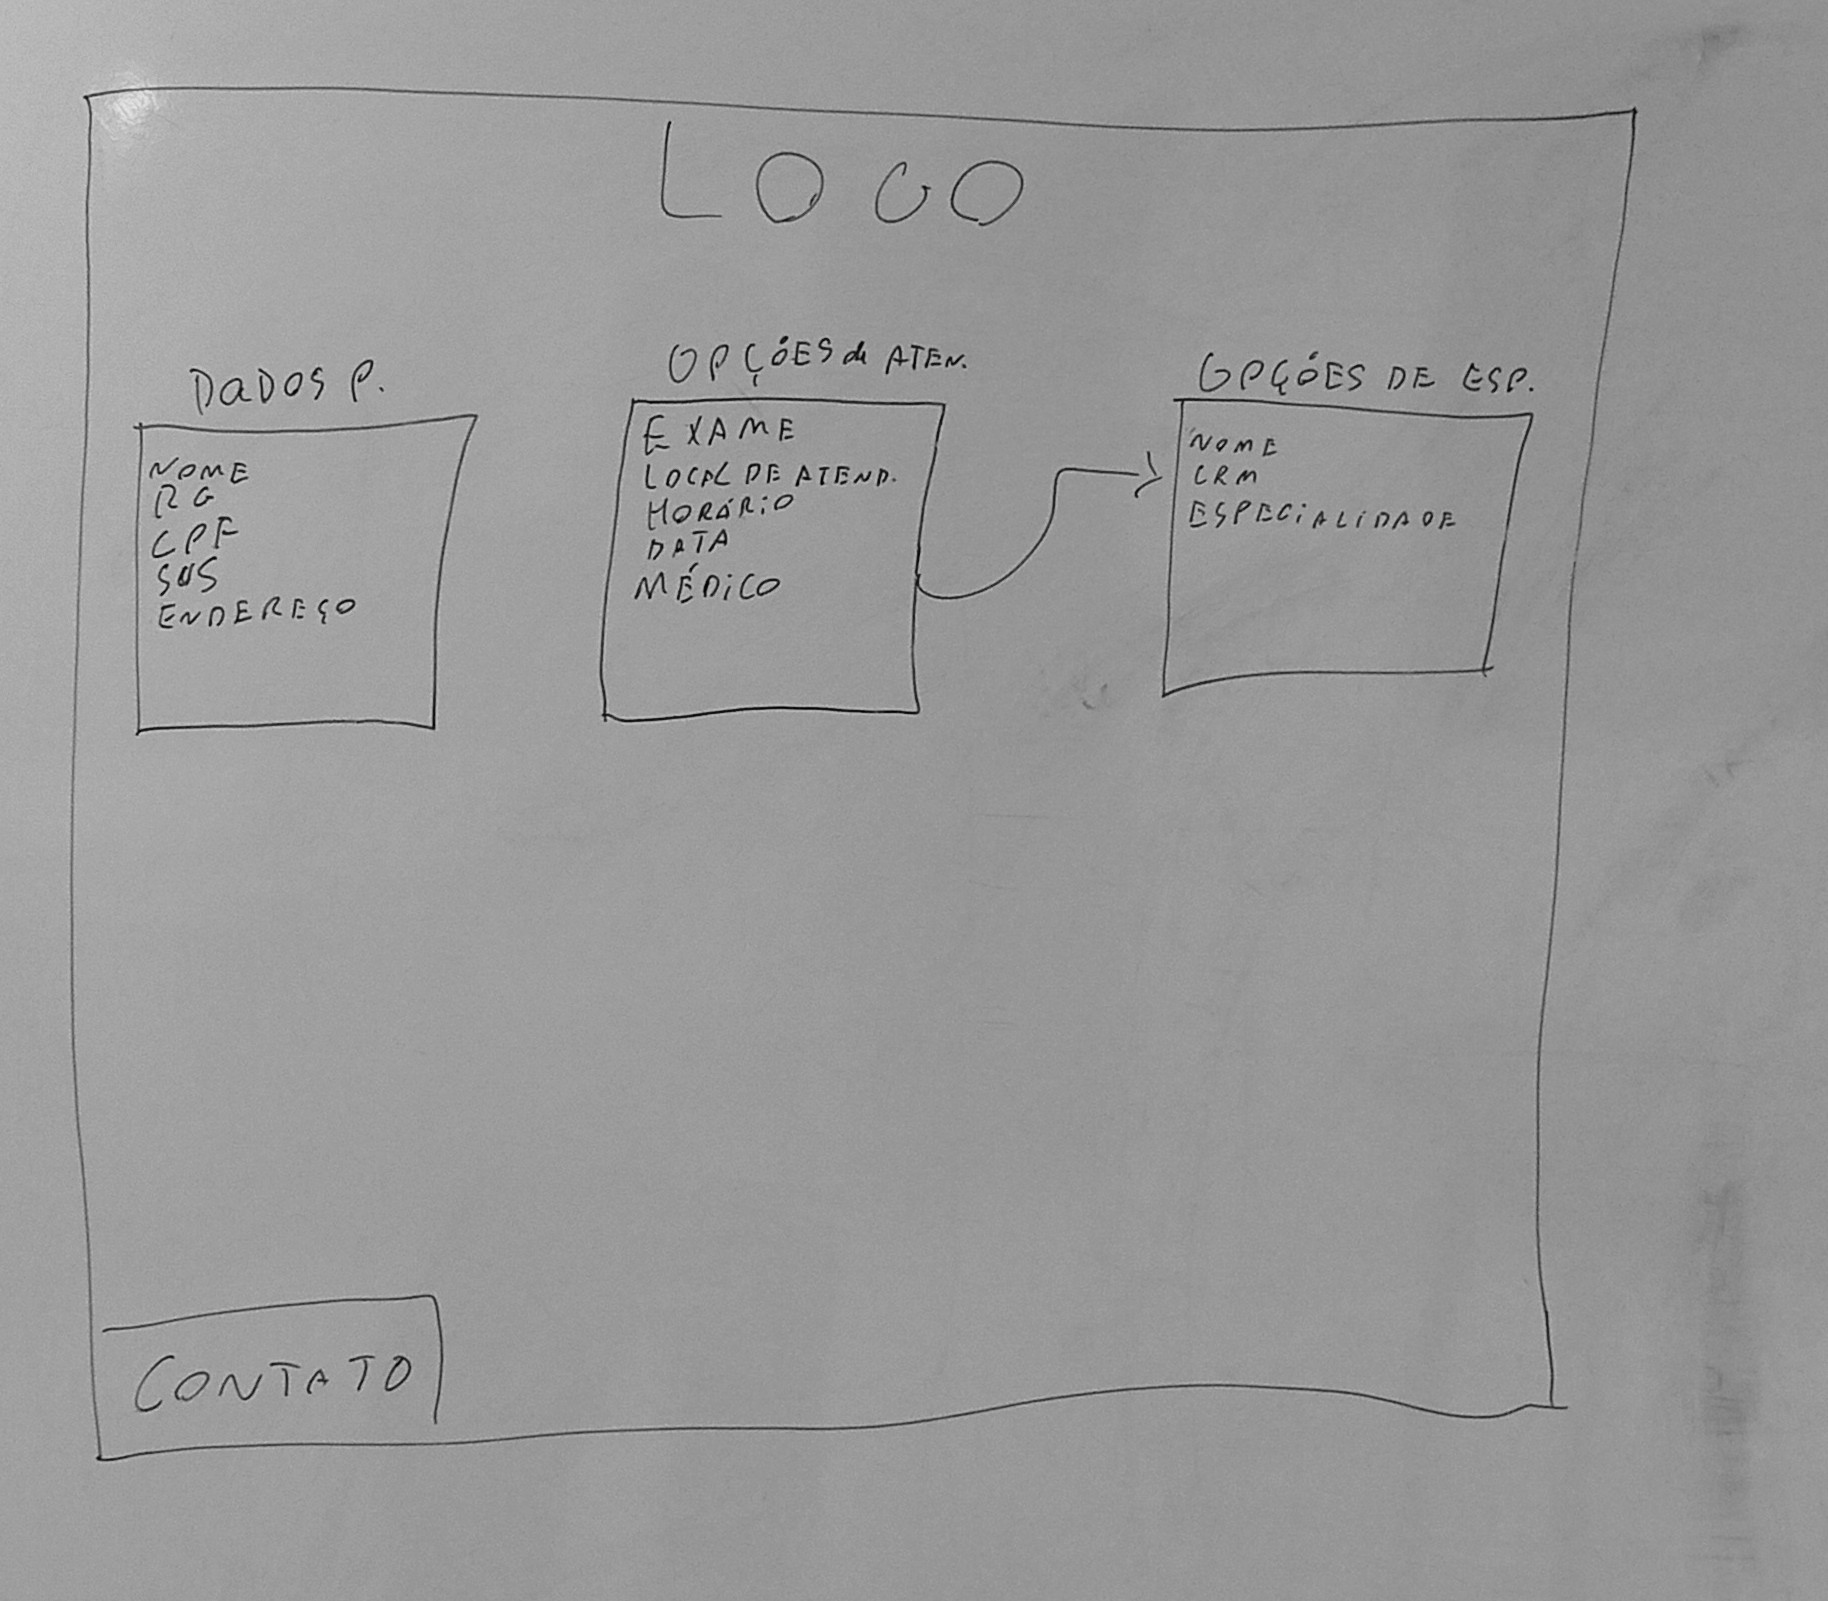 LOGO
DADOS P.
NOME
RG
CPF
SUS
ENDEREÇO
OPÇÕES de ATEN.
EXAME
LOCAL DE ATEND.
HORÁRIO
DATA
MÉDICO
OPÇÕES DE ESP.
NOME
CRM
ESPECIALIDADE
CONTATO